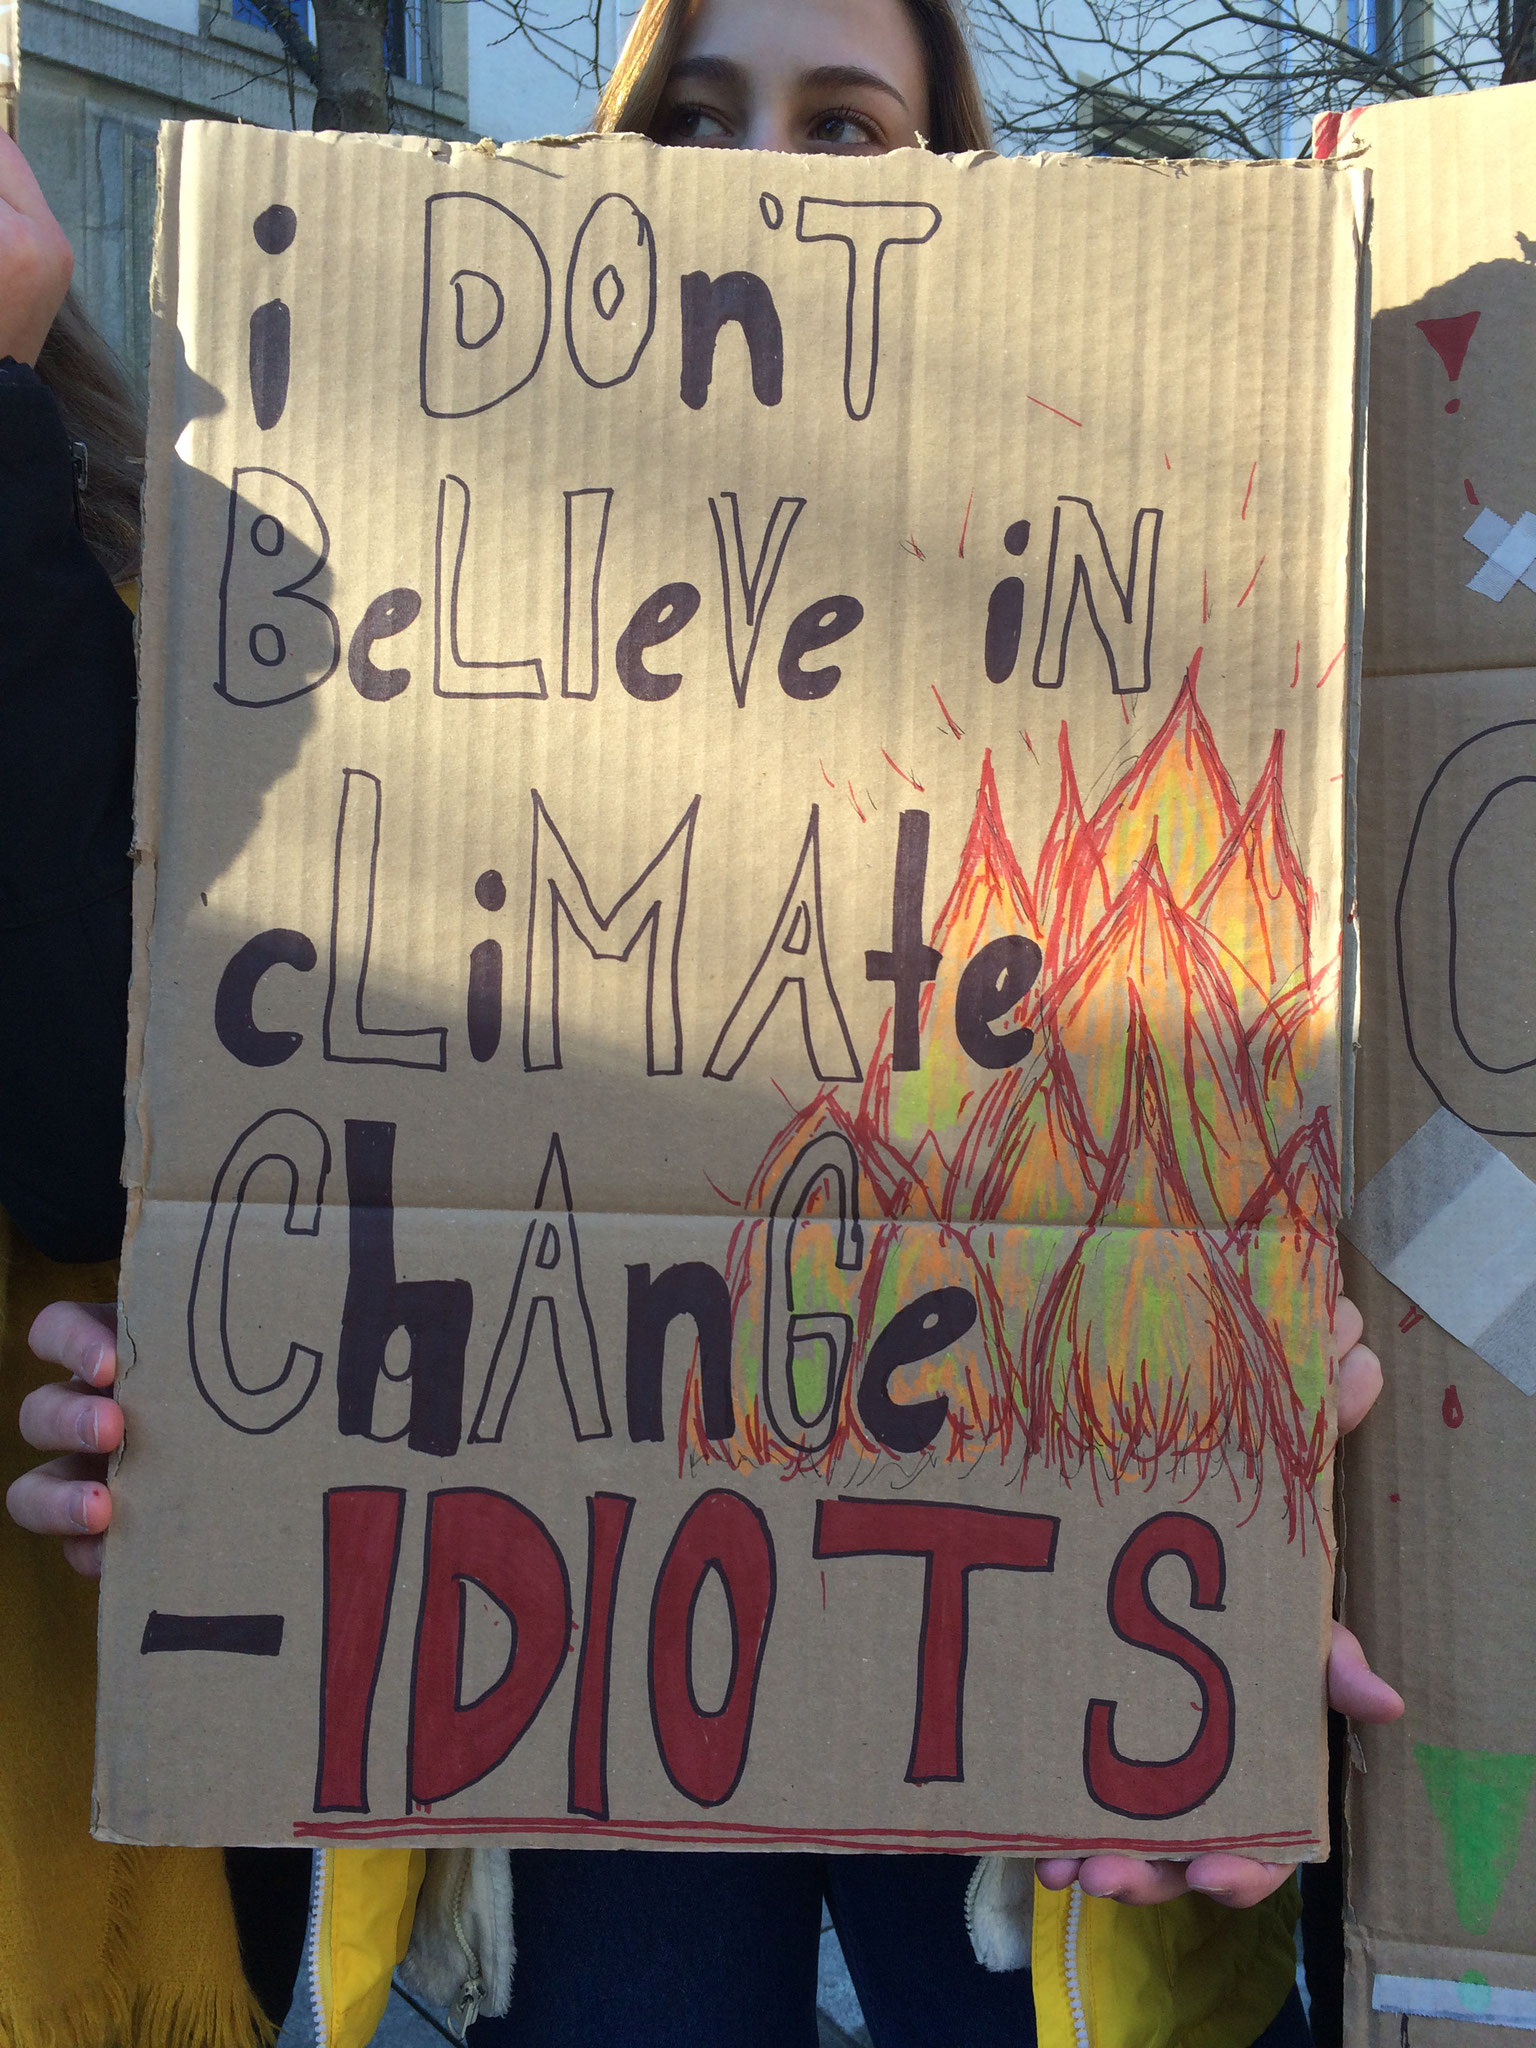 i DOn'T
BeLIeVe iN
cLiMAte
ChAnGe
-IDIOTS